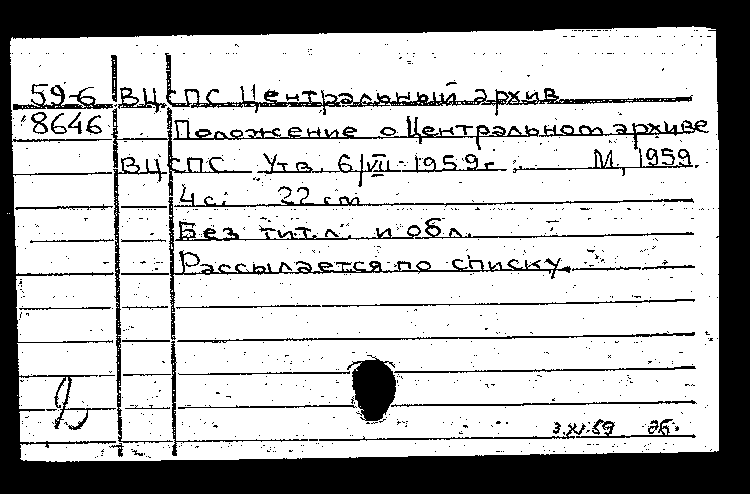 59-6 ВЦСПС Центральный архив
8646 Положение о Центральном архиве
ВЦСПС Утв. 6/VII-1959г. М., 1959.
4 с. 22 cm
Без тит. л. и обл.
Рассылается по списку.
2
3.XI.59 ЭБ.